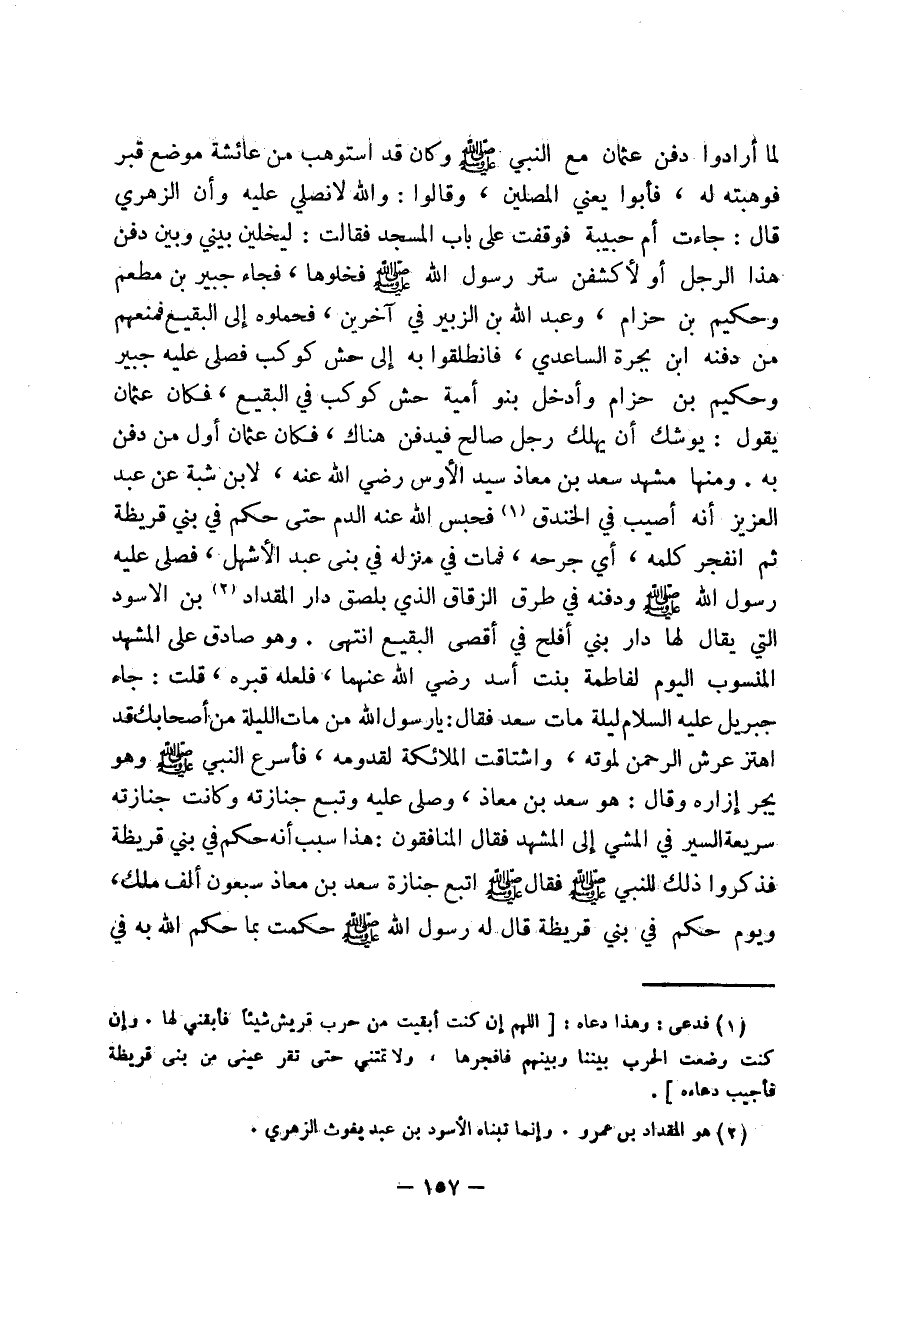 لما أرادوا دفن عثمان مع النبي ﷺ وكان قد استوهب من عائشة موضع قبر
فوهبته له ، فأبوا يعني المصلين ، وقالوا : والله لا نصلي عليه وأن الزهري
قال : جاءت أم حبيبة فوقفت على باب المسجد فقالت : ليخلين بيني وبين دفن
هذا الرجل أو لأكشفن ستر رسول الله ﷺ فخلوها ، فجاء جبير بن مطعم
وحكيم بن حزام ، وعبد الله بن الزبير في آخرين ، فحملوه إلى البقيع فمنعهم
من دفنه ابن بجرة الساعدي ، فانطلقوا به إلى حش كوكب فصلى عليه جبير
وحكيم بن حزام وأدخل بنو أمية حش كوكب في البقيع ، فكان عثمان
يقول : يوشك أن يهلك رجل صالح فيدفن هناك ، فكان عثمان أول من دفن
به . ومنها مشهد سعد بن معاذ سيد الأوس رضي الله عنه ، لابن شبة عن عبد
العزيز أنه أصيب في الخندق (١) فحبس الله عنه الدم حتى حكم في بني قريظة
ثم انفجر كلمه ، أي جرحه ، فمات في منزله في بنى عبد الأشهل ، فصلى عليه
رسول الله ﷺ ودفنه في طرق الزقاق الذي بلصق دار المقداد (٢) بن الاسود
التي يقال لها دار بني أفلح في أقصى البقيع انتهى . وهو صادق على المشهد
المنسوب اليوم لفاطمة بنت أسد رضي الله عنهما ، فلعله قبره ، قلت : جاء
جبريل عليه السلام ليلة مات سعد فقال : يا رسول الله من مات الليلة من أصحابك قد
اهتز عرش الرحمن لموته ، واشتاقت الملائكة لقدومه ، فأسرع النبي ﷺ وهو
يجر إزاره وقال : هو سعد بن معاذ ، وصلى عليه وتبع جنازته وكانت جنازته
سريعة السير في المشي إلى المشهد فقال المنافقون : هذا سبب أنه حكم في بني قريظة
فذكروا ذلك للنبي ﷺ فقال ﷺ اتبع جنازة سعد بن معاذ سبعون ألف ملك ،
ويوم حكم في بني قريظة قال له رسول الله ﷺ حكمت بما حكم الله به في
(١) فدعى : وهذا دعاه : [ اللهم إن كنت أبقيت من حرب قريش شيئاً فأبقني لها . وإن
كنت وضعت الحرب بيننا وبينهم فافجرها ، ولا تمتني حتى تقر عيني من بنى قريظة
فأجيب دعاءه ] .
(٢) هو المقداد بن عمرو . وإنما تبناه الأسود بن عبد يغوث الزهري .
— ١٥٧ —